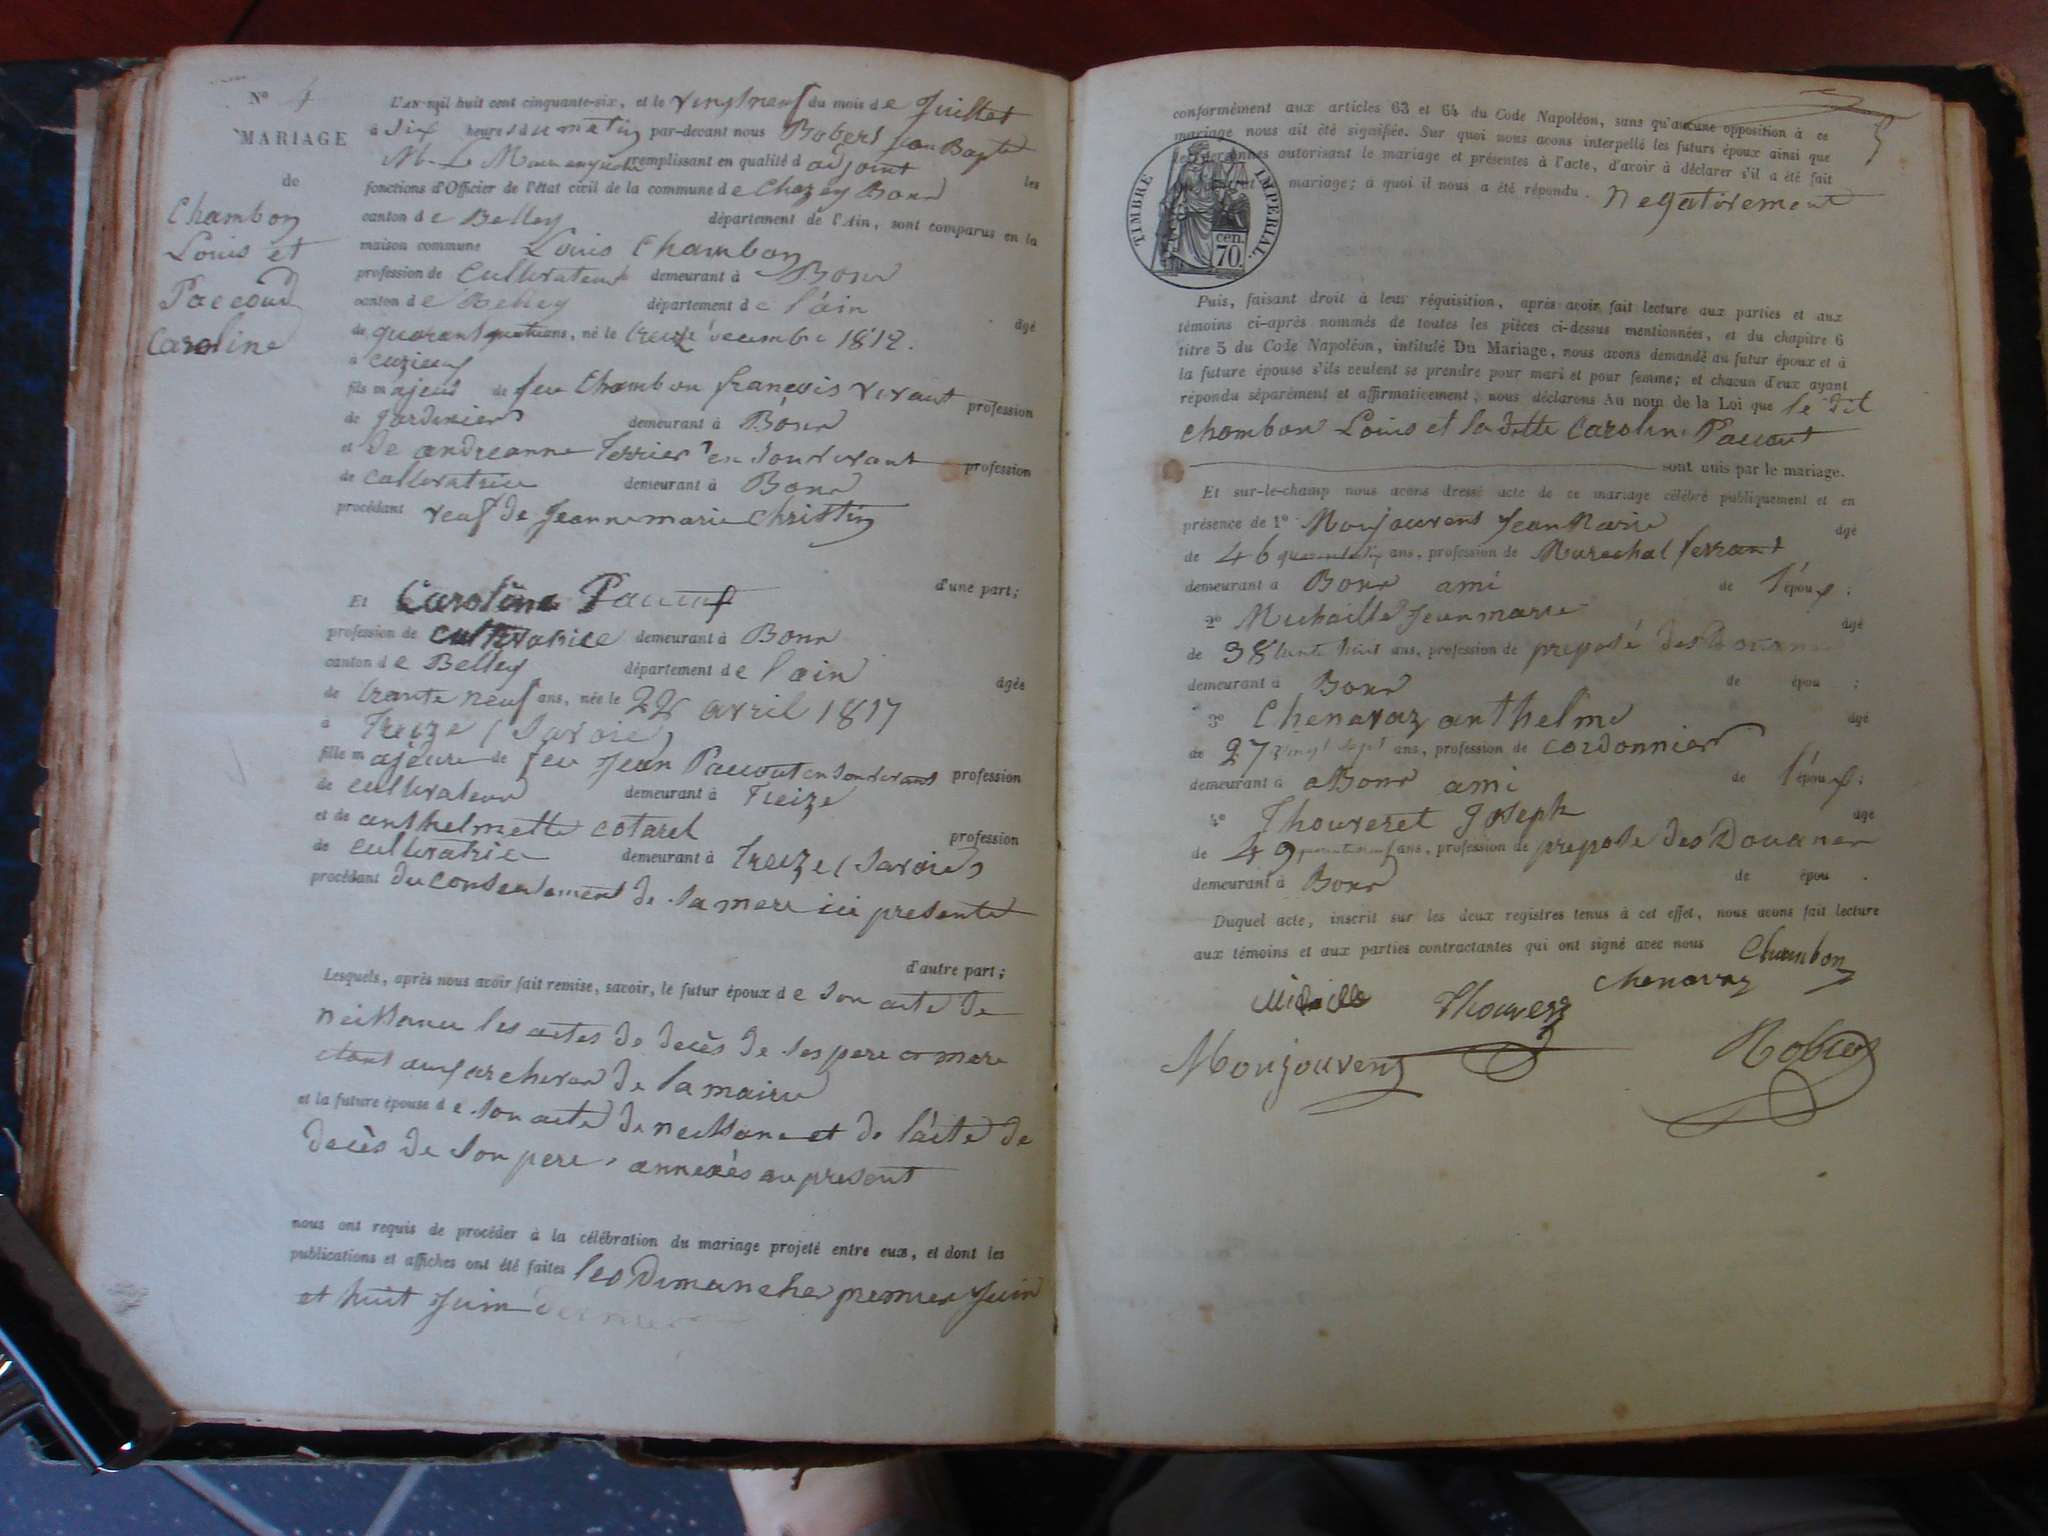 Nº 4
MARIAGE
de
Chambon
Louis et
Paccoud
Caroline
L'AN mil huit cent cinquante-six, et le vingtneuf du mois de Juillet
à six heures du matin par-devant nous Robert Jean Bapte
remplissant en qualité d adjoint les
fonctions d'Officier de l'état civil de la commune de Chazey Bons
canton de Belley département de l'Ain, sont comparus en la
maison commune Louis Chambon
profession de Cultivateur demeurant à Bons
canton de Belley département de l'ain âgé
de quarante quatre ans, né le treize decembre 1812.
à cuzieux
fils majeur de feu Chambon françois vivant profession
de jardinier demeurant à Bons
et de andreanne Terrier en son vivant profession
de cultivatrice demeurant à Bons
procédant veuf de Jeanne marie Christin
d'une part;
Et Caroline Paccout
profession de cultivatrice demeurant à Bons
canton de Belley département de l'ain âgée
de trante neuf ans, née le 22 avril 1817
à Treize (Savoie)
fille majeure de feu Jean Paccout en son vivant profession
de cultivateur demeurant à Treize
et de anthelmette cotarel profession
de cultivatrice demeurant à treize (Savoie)
procédant du consentement de sa mere ici presente
d'autre part;
Lesquels, après nous avoir fait remise, savoir, le futur époux de son acte de
neissance les actes de decès de ses pere et mere
etant aux archives de la mairie
et la future épouse de son acte de neissance et de l'acte de
decès de son pere, annexés au present
nous ont requis de procéder à la célébration du mariage projeté entre eux, et dont les
publications et affiches ont été faites les Dimanches premier Juin
et huit Juin dernier
conformément aux articles 63 et 64 du Code Napoléon, sans qu'aucune opposition à ce
mariage nous ait été signifiée. Sur quoi nous avons interpellé les futurs époux ainsi que
les personnes autorisant le mariage et présentes à l'acte, d'avoir à déclarer s'il a été fait
mariage; à quoi il nous a été répondu. negativement
TIMBRE IMPERIAL.
70 cen.
Puis, faisant droit à leur réquisition, après avoir fait lecture aux parties et aux
témoins ci-après nommés de toutes les pièces ci-dessus mentionnées, et du chapitre 6
titre 5 du Code Napoléon, intitulé Du Mariage, nous avons demandé au futur époux et à
la future épouse s'ils veulent se prendre pour mari et pour femme; et chacun d'eux ayant
répondu séparément et affirmativement, nous déclarons Au nom de la Loi que le dit
Chambon Louis et la ditte Caroline Paccout
sont unis par le mariage.
Et sur-le-champ nous avons dressé acte de ce mariage célébré publiquement et en
présence de 1º Monjouvent Jean Marie âgé
de 46 quarante six ans, profession de Marechal ferrant
demeurant à Bons ami de l'époux;
2º Michaille Jean marie âgé
de 38 trente huit ans, profession de preposé des Douanes
demeurant à Bons de épou ;
3º Chenavaz anthelme âgé
de 27 vingt sept ans, profession de cordonnier
demeurant à Bons ami de l'époux;
4º Thouveret Joseph âgé
de 49 quarante neuf ans, profession de preposé des Douanes
demeurant à Bons de épou .
Duquel acte, inscrit sur les deux registres tenus à cet effet, nous avons fait lecture
aux témoins et aux parties contractantes qui ont signé avec nous Chambon
Chenavaz
Monjouvent Robert